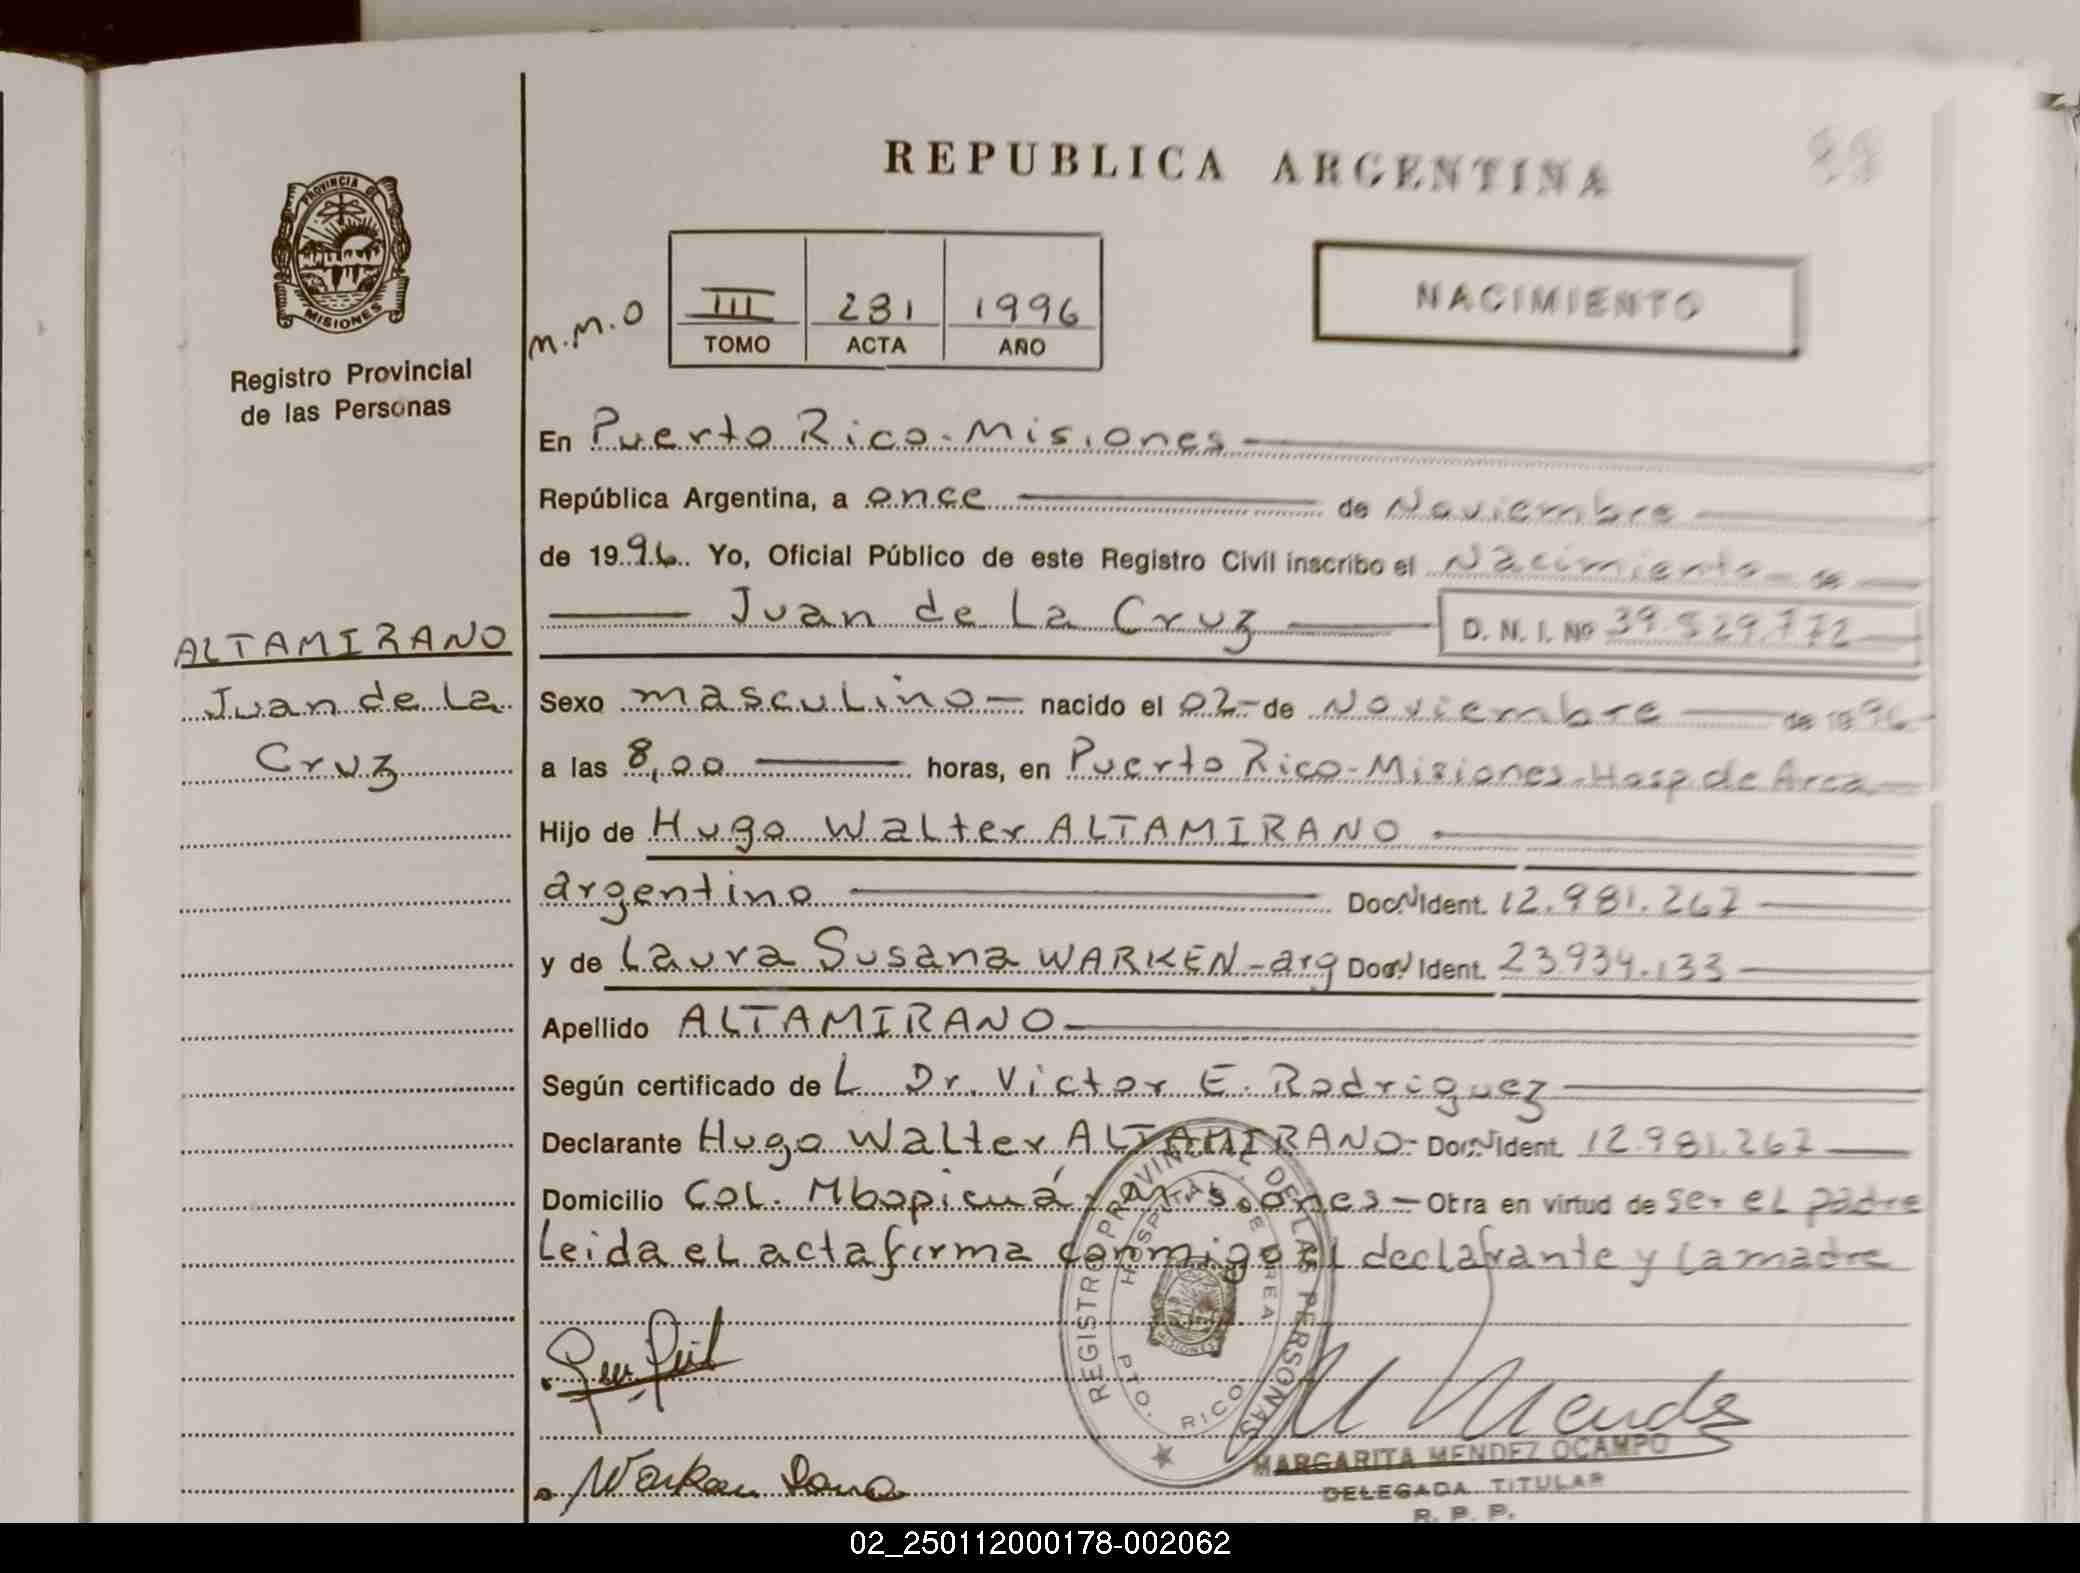 REPUBLICA ARGENTINA
PROVINCIA DE
MISIONES
Registro Provincial
de las Personas
M.M.O
III 281 1996
TOMO ACTA AÑO
NACIMIENTO
En Puerto Rico - Misiones
República Argentina, a once de Noviembre
de 1996. Yo, Oficial Público de este Registro Civil inscribo el Nacimiento de
Juan de La Cruz D. N. I. Nº 39.529.772
ALTAMIRANO
Juan de La
Cruz
Sexo masculino - nacido el 02 - de Noviembre de 1996
a las 8,00 horas, en Puerto Rico - Misiones - Hosp. de Area
Hijo de Hugo Walter ALTAMIRANO
argentino Doc. N Ident. 12.981.267
y de Laura Susana WARKEN - arg Doc. N Ident. 23.934.133
Apellido ALTAMIRANO
Según certificado de L Dr. Victor E. Rodriguez
Declarante Hugo Walter ALTAMIRANO - Doc. N Ident. 12.981.267
Domicilio Col. Mbopicuá - Misiones - Otra en virtud de ser el padre
Leida el acta firma conmigo el declarante y la madre
REGISTRO PROVINCIAL DE LAS PERSONAS
HOSPITAL DE AREA
PTO. RICO
MISIONES
M Mendez
Warken
MARGARITA MENDEZ OCAMPO
DELEGADA TITULAR
R. P. P.
02_250112000178-002062